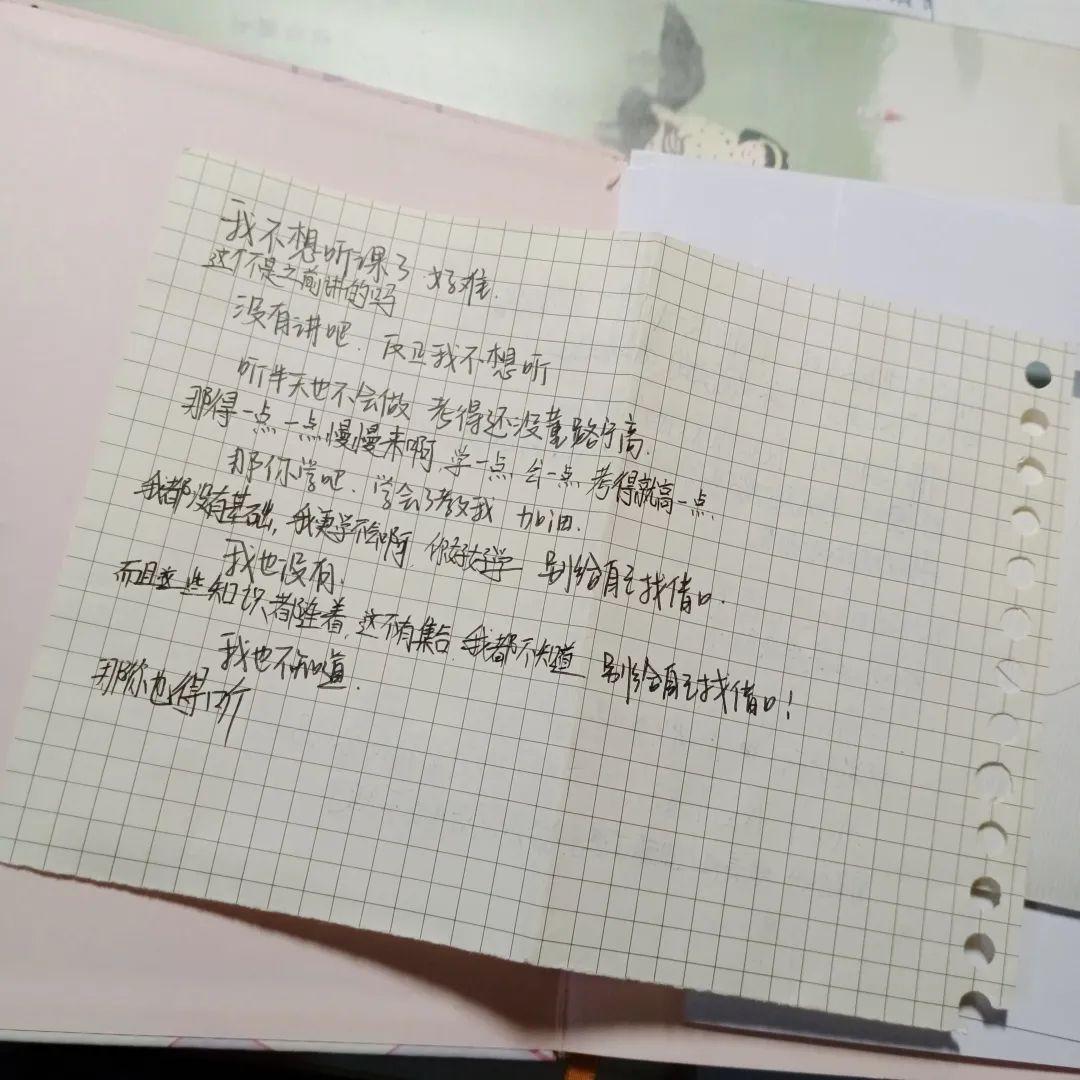 我不想听课了 好难.
这个不是之前讲的吗
没有讲吧. 反正我不想听
听半天也不会做 考得还没董路行高.
那得一点一点慢慢来啊 学一点 会一点 考得就高一点
那你学吧. 学会了教我 加油.
我都没有基础, 我更学不会啊. 你好好学 别给自己找借口.
我也没有.
而且这些知识都随着, 这不有集合. 我都不知道 别给自己找借口!
我也不知道.
那你也得听